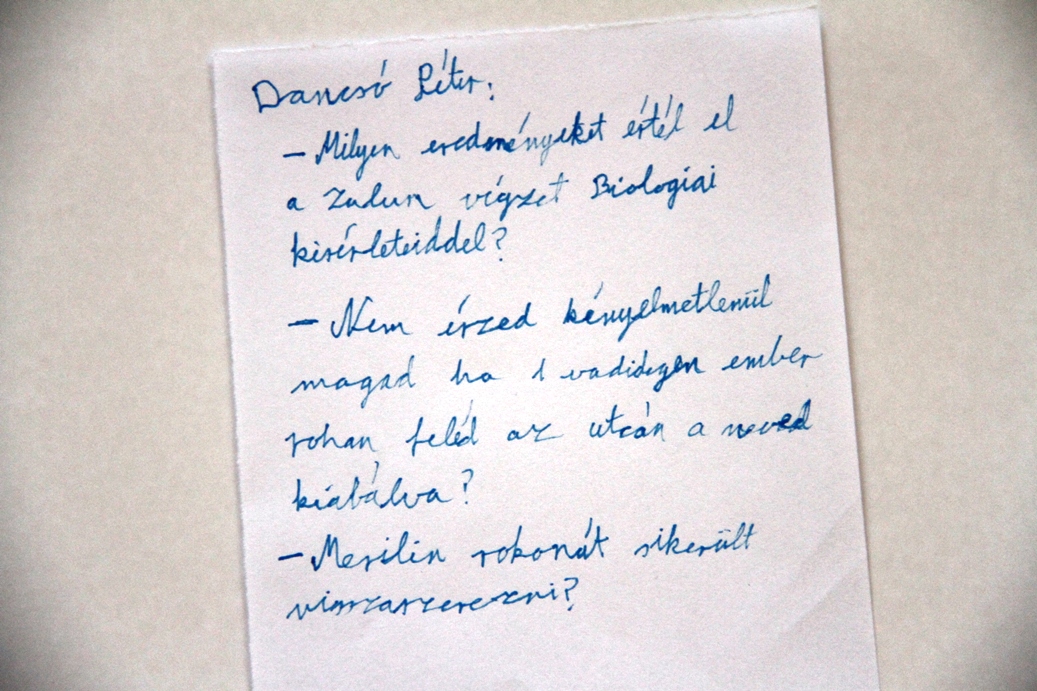 Dancsó Péter:
– Milyen eredményeket értél el
a Zadun végzet Biologiai
kisérleteiddel?
– Nem érzed kényelmetlenül
magad ha 1 vadidegen ember
rohan feléd az utcán a neved
kiabálva?
– Merilin rokonát sikerült
visszaszerezni?